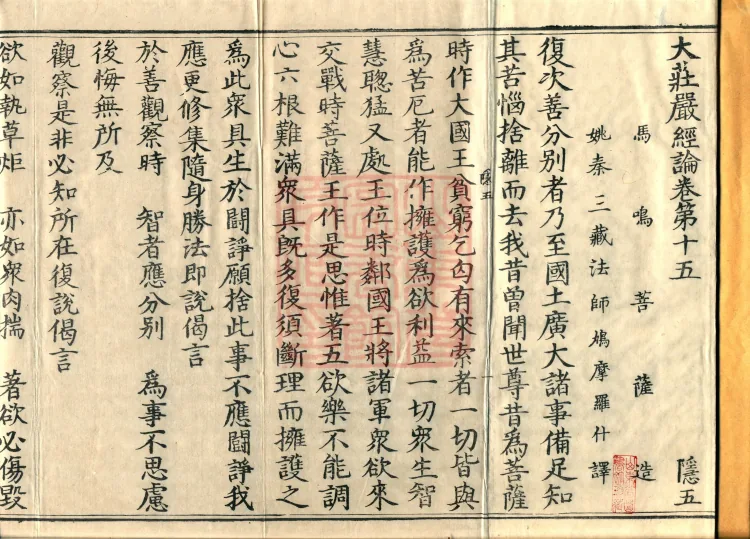 大莊嚴經論卷第十五 隱五
馬鳴菩薩造
姚秦三藏法師鳩摩羅什譯
復次善分別者乃至國土廣大諸事備足知
其苦惱捨離而去我昔曾聞世尊昔為菩薩
隱五
時作大國王貧窮乞匃有來索者一切皆與
為苦厄者能作擁護為欲利益一切眾生智
慧聰猛又處王位時鄰國王將諸軍眾欲來
交戰時菩薩王作是思惟著五欲樂不能調
心六根難滿眾具既多復須斷理而擁護之
為此眾具生於鬪諍願捨此事不應鬪諍我
應更修集隨身勝法即說偈言
於善觀察時 智者應分別 為事不思慮
後悔無所及
觀察是非必知所在復說偈言
欲如執草炬 亦如眾肉揣 著欲必傷毀